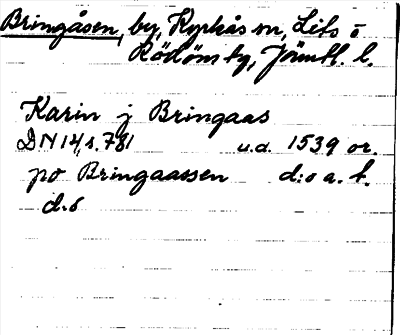 Bringåsen, by, Kyrkås sn, Lits o
Rödöns tg, Jämtl. l.
Karin j Bringaas
DN 14, s. 781 u.d. 1539 or.
po Bringaassen d:o a. k.
d.s